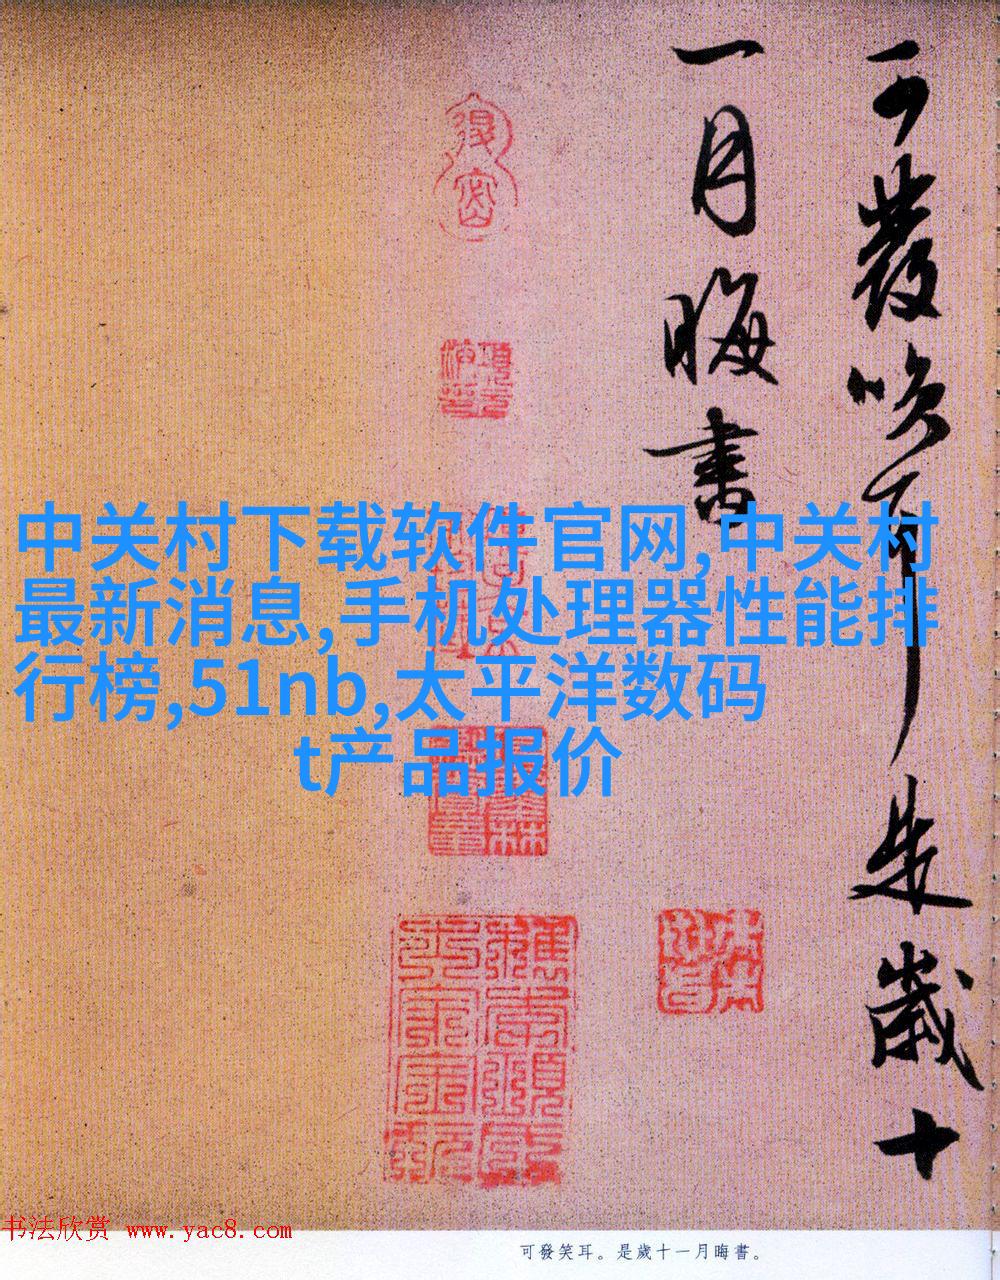 可發笑耳是歲十
一月晦書
中关村下载软件官网,中关村
最新消息,手机处理器性能排
行榜,51nb,太平洋数码
t产品报价
书法欣赏 www.yac8.com
可發笑耳。是歲十一月晦書。